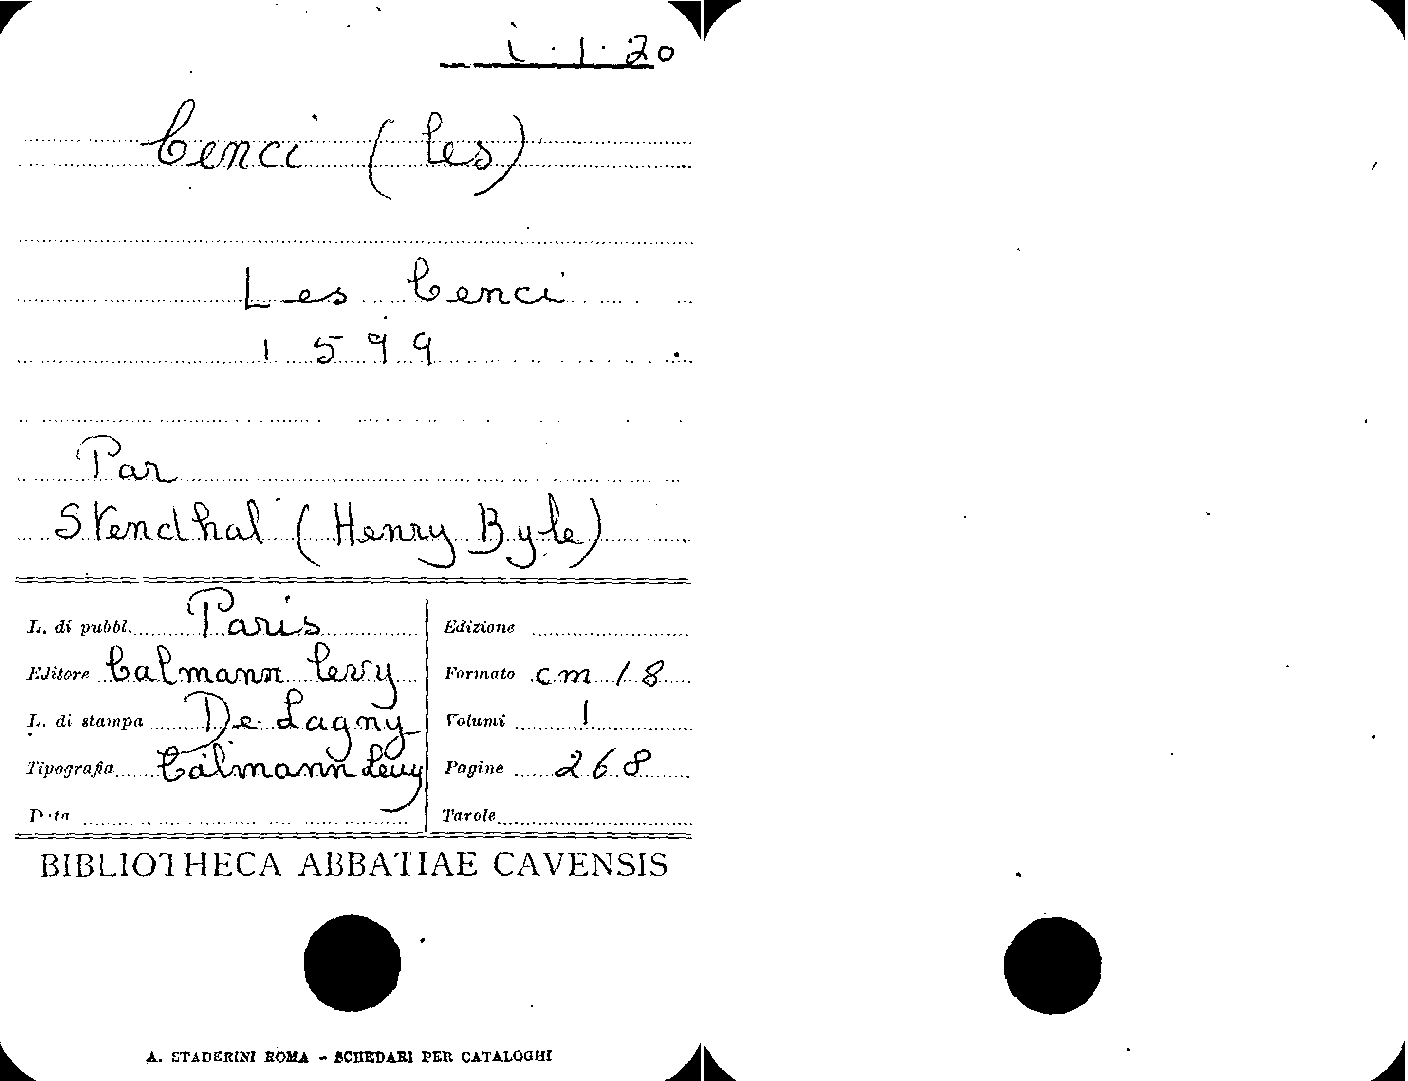 i.1.20
Cenci (les)
Les Cenci
1599
Par
Stendhal (Henry Byle)
L. di pubbl. Paris
Editore Calmann Levy
L. di stampa De Lagny
Tipografia Calmann Levy
Data
Edizione
Formato cm 18
Volumi 1
Pagine 268
Tavole
BIBLIOTHECA ABBATIAE CAVENSIS
A. STADERINI ROMA - SCHEDARI PER CATALOGHI